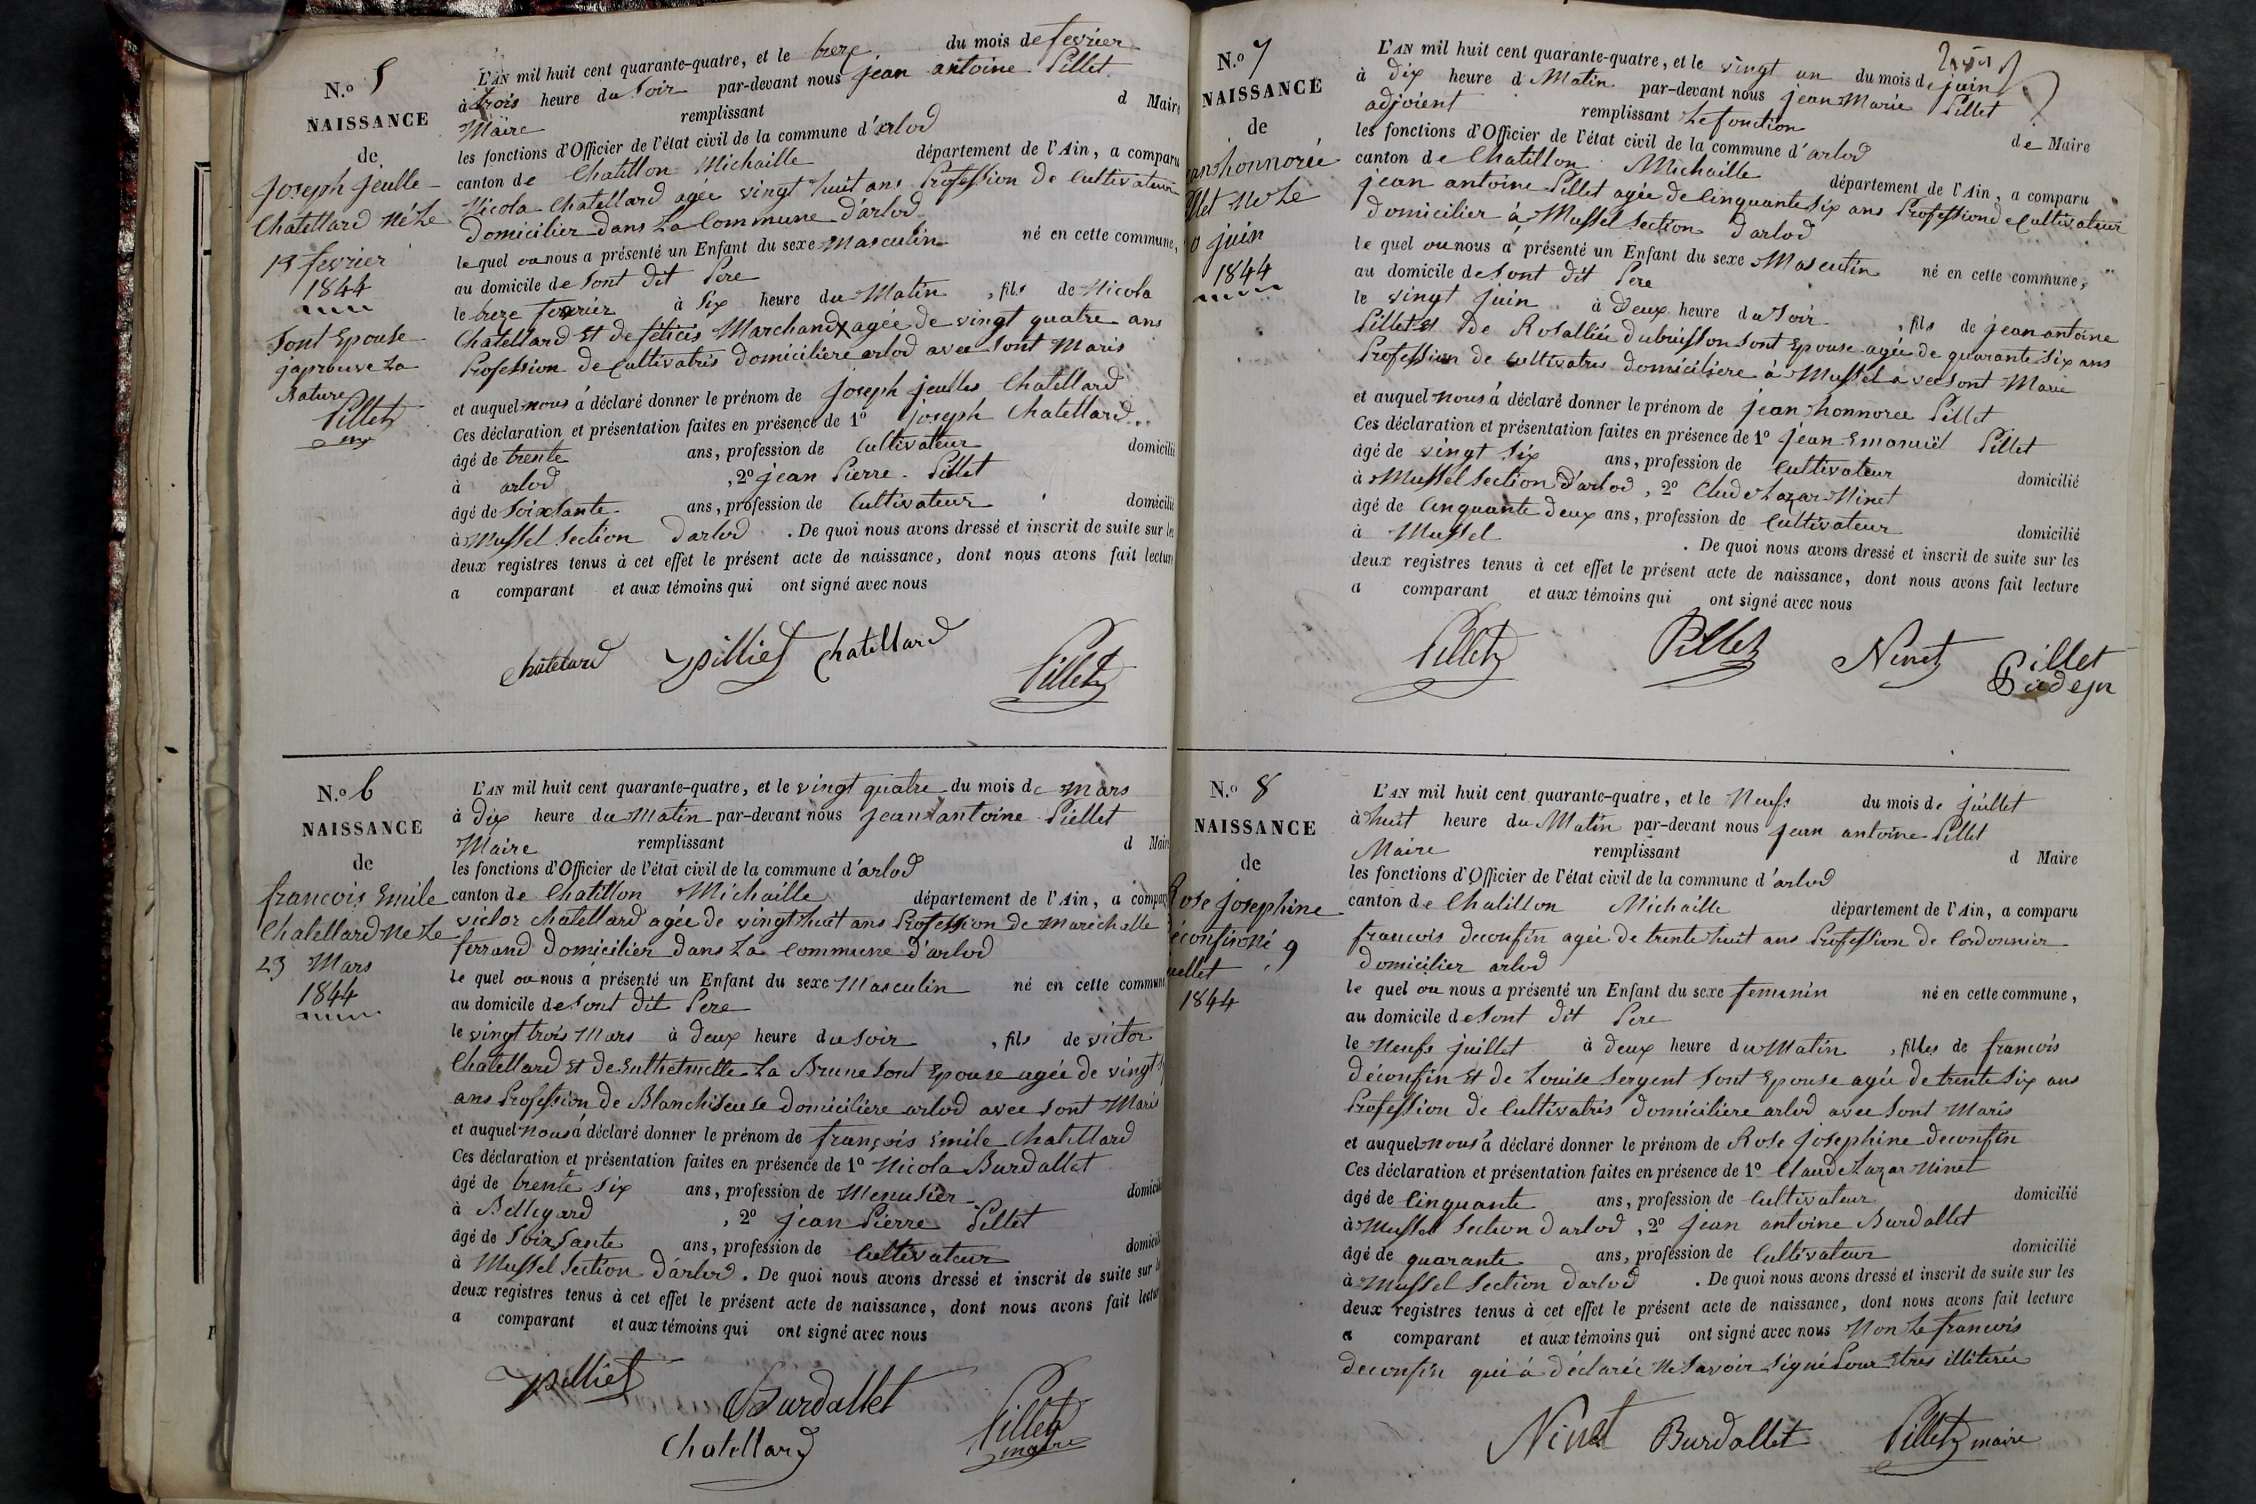 N.o 5
NAISSANCE
de
joseph jeulle
Chatellard né Le
13 fevrier
1844
Sont Epouse
japrouve La
Rature
Pillet
L'AN mil huit cent quarante-quatre, et le treze du mois de fevrier
à trois heure du Soir par-devant nous jean antoine Pillet
Maire remplissant d Maire
les fonctions d'Officier de l'état civil de la commune d'arlod
canton de Chatillon Michaille département de l'Ain, a comparu
Nicola Chatellard agée vingt huit ans Profession de Cultivateur
Domicilier Dans La Commune D'arlod
le quel ou nous a présenté un Enfant du sexe Masculin né en cette commune,
au domicile de Sont dit Pere
le treze fevrier à Six heure du Matin , fils de Nicola
Chatellard Et de felicis Marchand agée de vingt quatre ans
Profession de Cultivatris domiciliere arlod avec Sont Maris
et auquel nous à déclaré donner le prénom de joseph jeulles Chatellard
Ces déclaration et présentation faites en présence de 1o joseph Chatellard
âgé de trente ans, profession de Cultivateur domicilié
à arlod , 2o jean Pierre Pillet
âgé de Soixsante ans, profession de Cultivateur domicilié
à Mussel Section Darlod . De quoi nous avons dressé et inscrit de suite sur les
deux registres tenus à cet effet le présent acte de naissance, dont nous avons fait lecture
a comparant et aux témoins qui ont signé avec nous
Chatelard Pilliet Chatellard Pillet
N.o 6
NAISSANCE
de
francois Emile
Chatellard Né Le
23 Mars
1844
L'AN mil huit cent quarante-quatre, et le vingt quatre du mois de Mars
à Dix heure du Matin par-devant nous jean antoine Pillet
Maire remplissant d Maire
les fonctions d'Officier de l'état civil de la commune d'arlod
canton de Chatillon Michaille département de l'Ain, a comparu
victor Chatellard agée de vingt huit ans Profession de Marichalle
ferrand Domicilier Dans La Commune D'arlod
le quel ou nous à présenté un Enfant du sexe Masculin né en cette commune
au domicile de Sont dit Pere
le vingt trois Mars à deux heure du Soir , fils de victor
Chatellard Et de La Brune Sont Epouse agée de vingt
ans Profession de Blanchiseuse Domiciliere arlod avec Sont Maris
et auquel nous à déclaré donner le prénom de françois Emile Chatellard
Ces déclaration et présentation faites en présence de 1o Nicola Burdallet
âgé de trente Six ans, profession de Menusier domicilié
à Bellegard , 2o jean Pierre Pillet
âgé de Soixsante ans, profession de Cultivateur domicilié
à Mussel Section d'arlod . De quoi nous avons dressé et inscrit de suite sur
deux registres tenus à cet effet le présent acte de naissance, dont nous avons fait lecture
a comparant et aux témoins qui ont signé avec nous
Pilliet Burdallet Pillet
Chatellard maire
N.o 7
NAISSANCE
de
jean honnorée
Pillet Né Le
20 juin
1844
L'AN mil huit cent quarante-quatre, et le vingt un du mois de juin
à dix heure d Matin par-devant nous jean Marie Pillet
adjoient remplissant Le fonction
les fonctions d'Officier de l'état civil de la commune d'arlod de Maire
canton de Chatillon Michaille département de l'Ain, a comparu
jean antoine Pillet agée de Cinquante Six ans Profession de Cultivateur
Domicilier à Mussel Section d'arlod
le quel ou nous à présenté un Enfant du sexe Masculin né en cette commune,
au domicile de Sont dit Pere
le vingt juin à deux heure du Soir , fils de jean antoine
Pillet Et de Rosalliée Dubuisson Sont Epouse agée de quarante Six ans
Profession de Cultivatris Domiciliere à Mussel avec Sont Marie
et auquel nous à déclaré donner le prénom de jean honnoree Pillet
Ces déclaration et présentation faites en présence de 1o jean Emanuël Pillet
âgé de vingt Six ans, profession de Cultivateur domicilié
à Mussel Section D'arlod , 2o Clude Lazar Ninet
âgé de Cinquante deux ans, profession de Cultivateur domicilié
à Mussel . De quoi nous avons dressé et inscrit de suite sur les
deux registres tenus à cet effet le présent acte de naissance, dont nous avons fait lecture
a comparant et aux témoins qui ont signé avec nous
Pillet Pillet Ninet Pillet
N.o 8
NAISSANCE
de
Rose josephine
Déconfin Né 9
juillet
1844
L'AN mil huit cent quarante-quatre, et le Neufs du mois de juillet
à huit heure du Matin par-devant nous jean antoine Pillet
Maire remplissant d Maire
les fonctions d'Officier de l'état civil de la commune d'arlod
canton de Chatillon Michaille département de l'Ain, a comparu
francois deconfin agée de trente huit ans Profession de Cordonnier
domicilier arlod
le quel ou nous a présenté un Enfant du sexe femenin né en cette commune,
au domicile de Sont dit Pere
le Neufs juillet à deux heure du Matin , filles de francois
déconfin Et de Louise Sergent Sont Epouse agée de trente Six ans
Profession de Cultivatris domiciliere arlod avec Sont Maris
et auquel nous à déclaré donner le prénom de Rose josephine deconfin
Ces déclaration et présentation faites en présence de 1o Claude Lazar Ninet
âgé de Cinquante ans, profession de Cultivateur domicilié
à Mussel Section darlod , 2o jean antoine Burdallet
âgé de quarante ans, profession de Cultivateur domicilié
à Mussel Section Darlod . De quoi nous avons dressé et inscrit de suite sur les
deux registres tenus à cet effet le présent acte de naissance, dont nous avons fait lecture
a comparant et aux témoins qui ont signé avec nous Non Le francois
deconfin qui à déclarée Ne Savoir Signé Pour Etres illiterée
Ninet Burdallet Pillet maire